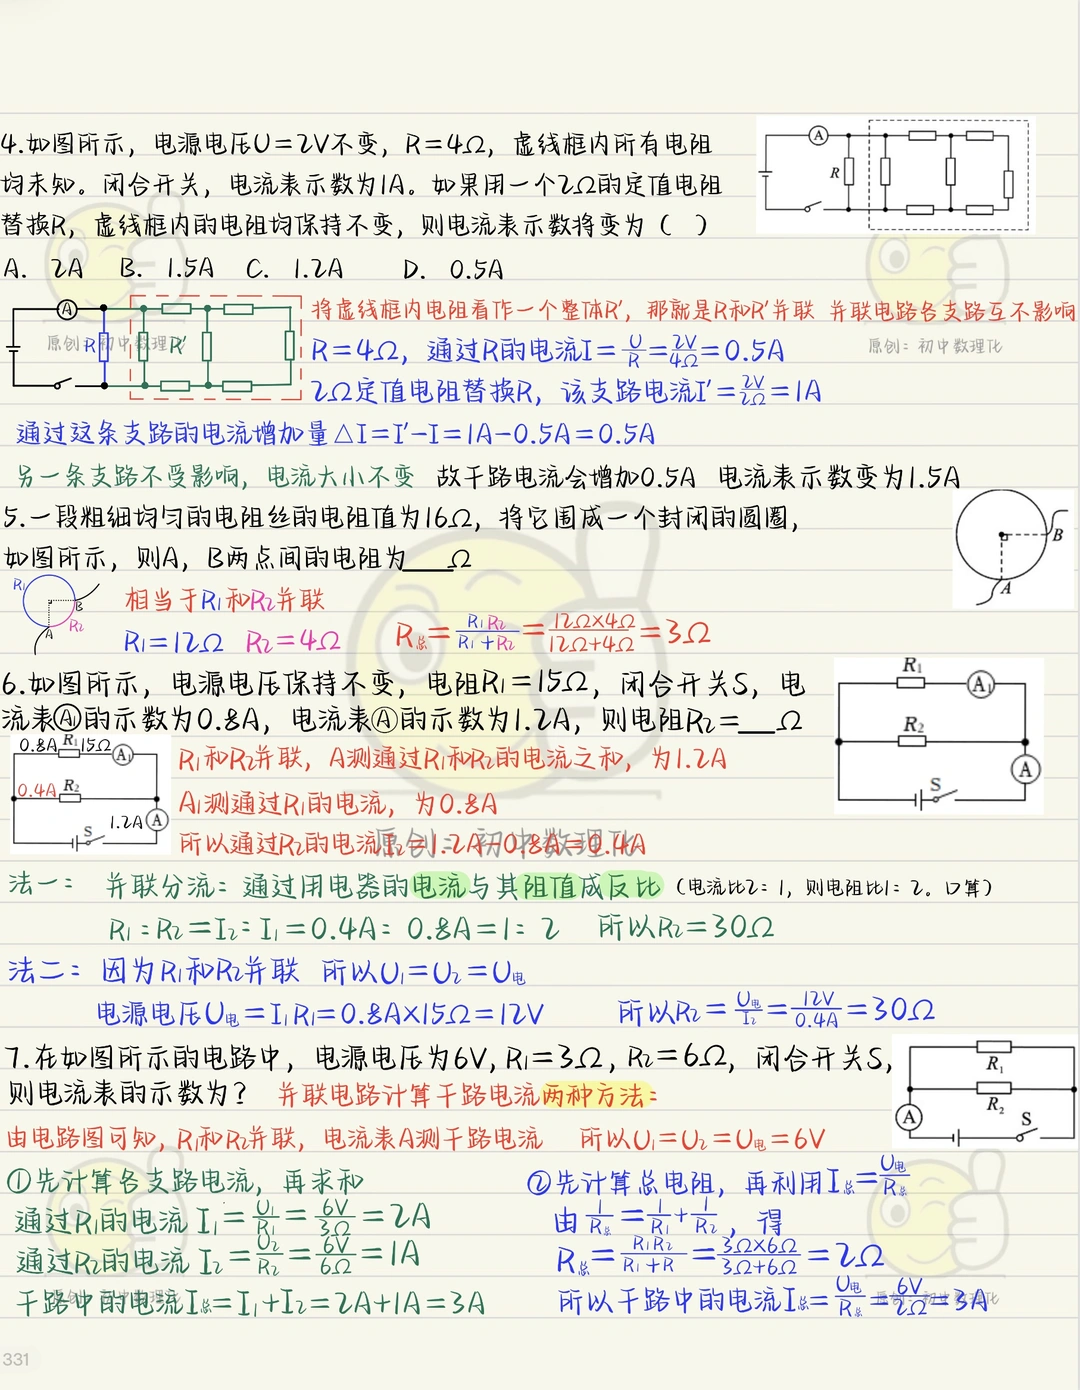 4.如图所示，电源电压U=2V不变，R=4Ω，虚线框内所有电阻
均未知。闭合开关，电流表示数为1A。如果用一个2Ω的定值电阻
替换R，虚线框内的电阻均保持不变，则电流表示数将变为（ ）
A. 2A B. 1.5A C. 1.2A D. 0.5A
A
R
A
R
R'
将虚线框内电阻看作一个整体R'，那就是R和R'并联 并联电路各支路互不影响
原创：初中数理化
原创：初中数理化
R=4Ω，通过R的电流I=U/R=2V/4Ω=0.5A
2Ω定值电阻替换R，该支路电流I'=2V/2Ω=1A
通过这条支路的电流增加量△I=I'-I=1A-0.5A=0.5A
另一条支路不受影响，电流大小不变 故干路电流会增加0.5A 电流表示数变为1.5A
5.一段粗细均匀的电阻丝的电阻值为16Ω，将它围成一个封闭的圆圈，
如图所示，则A，B两点间的电阻为___Ω
B
A
R1
B
A
R2
相当于R1和R2并联
R1=12Ω R2=4Ω R总=R1R2/R1+R2=12Ω×4Ω/12Ω+4Ω=3Ω
6.如图所示，电源电压保持不变，电阻R1=15Ω，闭合开关S，电
流表A1的示数为0.8A，电流表A的示数为1.2A，则电阻R2=___Ω
R1
A1
R2
A
S
0.8A R1 15Ω A1
0.4A R2
1.2A A
S
R1和R2并联，A测通过R1和R2的电流之和，为1.2A
A1测通过R1的电流，为0.8A
所以通过R2的电流I2=1.2A-0.8A=0.4A
原创：初中数理化
法一： 并联分流：通过用电器的电流与其阻值成反比（电流比2：1，则电阻比1：2。口算）
R1：R2=I2：I1=0.4A：0.8A=1：2 所以R2=30Ω
法二：因为R1和R2并联 所以U1=U2=U电
电源电压U电=I1R1=0.8A×15Ω=12V 所以R2=U电/I2=12V/0.4A=30Ω
7.在如图所示的电路中，电源电压为6V,R1=3Ω,R2=6Ω，闭合开关S，
则电流表的示数为？ 并联电路计算干路电流两种方法：
R1
R2
A
S
由电路图可知，R1和R2并联，电流表A测干路电流 所以U1=U2=U电=6V
①先计算各支路电流，再求和
通过R1的电流I1=U1/R1=6V/3Ω=2A
通过R2的电流I2=U2/R2=6V/6Ω=1A
干路中的电流I总=I1+I2=2A+1A=3A
原创：初中数理化
②先计算总电阻，再利用I总=U电/R总
由1/R总=1/R1+1/R2，得
R总=R1R2/R1+R=3Ω×6Ω/3Ω+6Ω=2Ω
所以干路中的电流I总=U电/R总=6V/2Ω=3A
原创：初中数理化
331